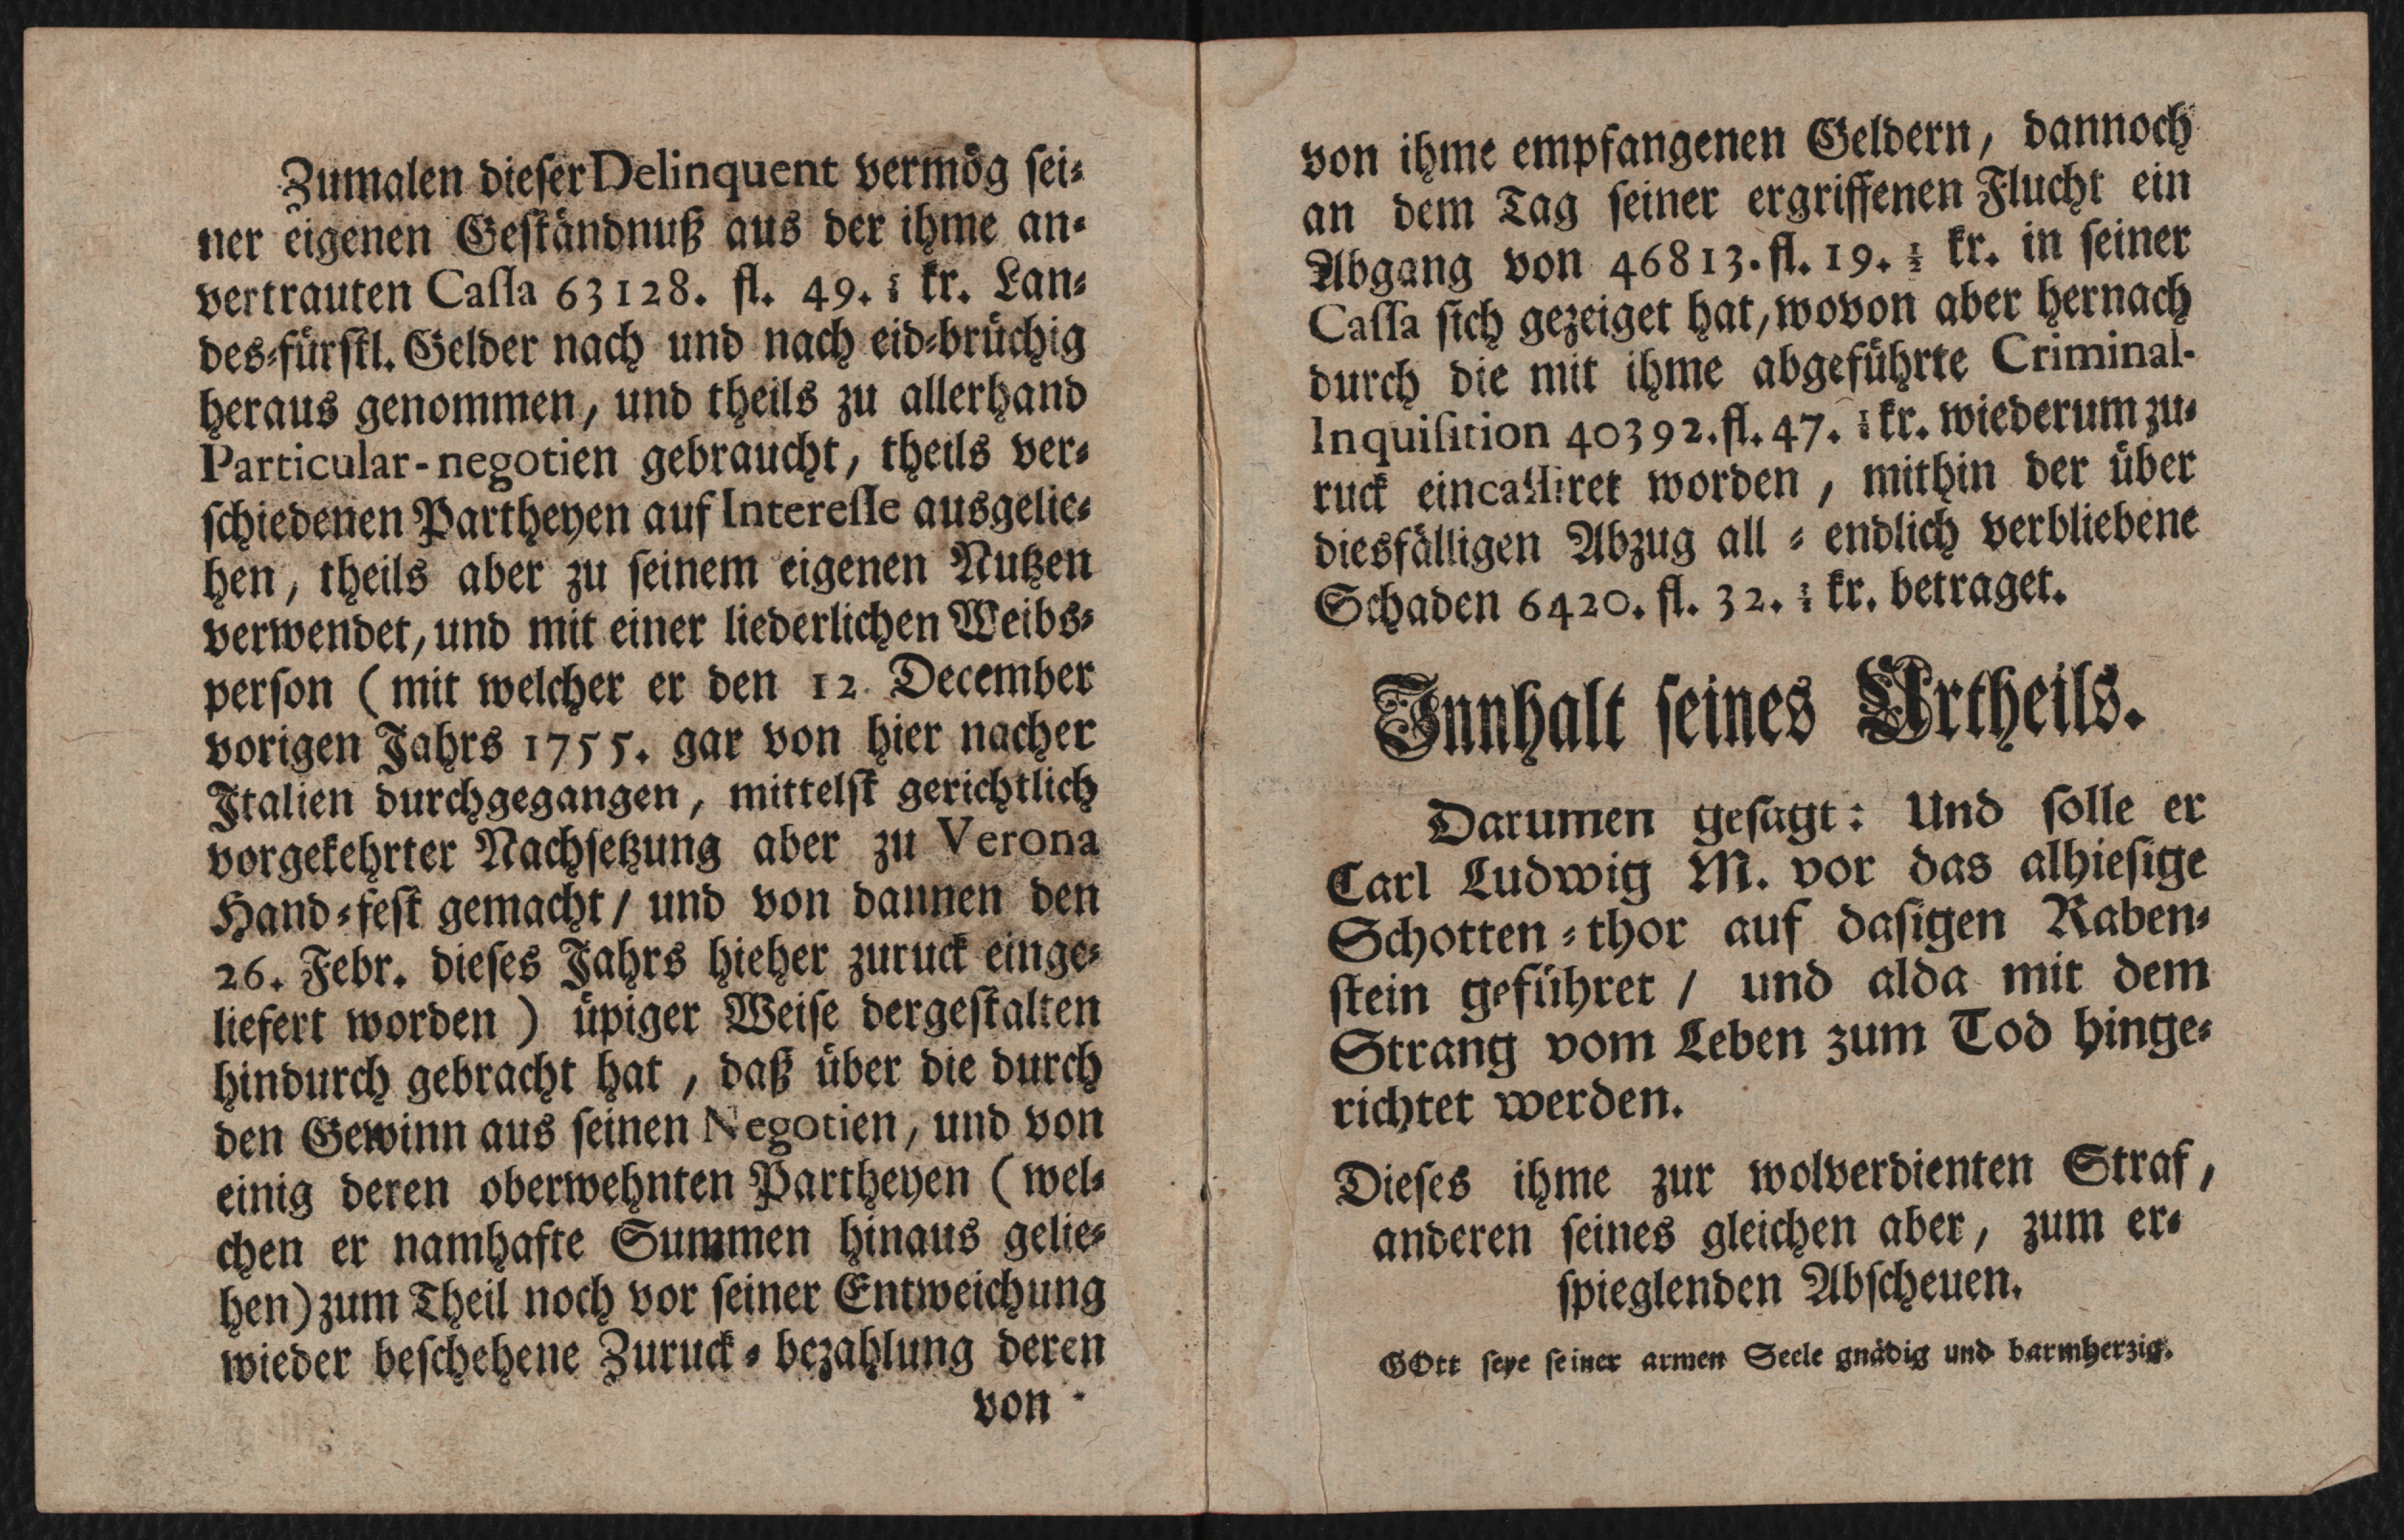 Zumalen dieser Delinquent vermög sei⸗
ner eigenen Geständnuß aus der ihme an⸗
vertrauten Cassa 63128. fl. 49. kr. Lan⸗
des⸗fürstl. Gelder nach und nach eid⸗brüchig
heraus genommen, und theils zu allerhand
Particular-negotien gebraucht, theils ver⸗
schiedenen Partheyen auf Interesse ausgelie⸗
hen, theils aber zu seinem eigenen Nutzen
verwendet, und mit einer liederlichen Weibs⸗
person (mit welcher er den 12. December
vorigen Jahrs 1755. gar von hier nacher
Italien durchgegangen, mittelst gerichtlich
vorgekehrter Nachsetzung aber zu Verona
Hand⸗fest gemacht / und von dannen den
26. Febr. dieses Jahrs hieher zuruck einge⸗
liefert worden) üpiger Weise dergestalten
hindurch gebracht hat, daß über die durch
den Gewinn aus seinen Negotien, und von
einig deren oberwehnten Partheyen (wel⸗
chen er namhafte Summen hinaus gelie⸗
hen) zum Theil noch vor seiner Entweichung
wieder beschehene Zuruck⸗bezahlung deren
von
von ihme empfangenen Geldern, dannoch
an dem Tag seiner ergriffenen Flucht ein
Abgang von 46813. fl. 19. ½ kr. in seiner
Cassa sich gezeiget hat, wovon aber hernach
durch die mit ihme abgeführte Criminal-
Inquisition 40392. fl. 47. kr. wiederum zu⸗
ruck eincassiret worden, mithin der über
diesfälligen Abzug all⸗endlich verbliebene
Schaden 6420. fl. 32. kr. betraget.
Innhalt seines Urtheils.
Darumen gesagt: Und solle er
Carl Ludwig M. vor das alhiesige
Schotten⸗thor auf dasigen Raben⸗
stein geführet / und alda mit dem
Strang vom Leben zum Tod hinge⸗
richtet werden.
Dieses ihme zur wolverdienten Straf,
anderen seines gleichen aber, zum er⸗
spieglenden Abscheuen.
GOtt seye seiner armen Seele gnädig und barmherzig.